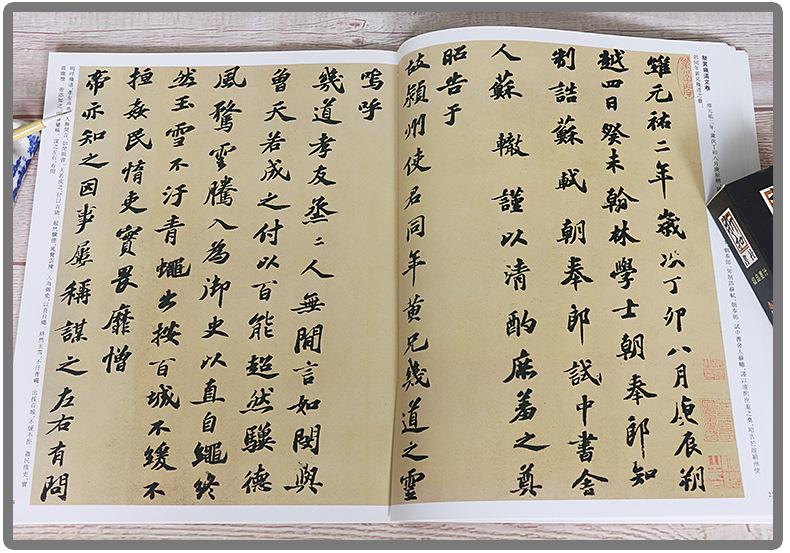 祭黃幾道文卷
維元祐二年歲次丁卯八月庚辰朔
越四日癸未翰林學士朝奉郎知
制誥蘇軾朝奉郎試中書舍
人蘇轍謹以清酌庶羞之奠
昭告于
故潁州使君同年黃兄幾道之靈
嗚呼
幾道孝友烝〻人無間言如閔與
曾天若成之付以百能超然驥德
風騖雲騰入為御史以直自繩終
然玉雪不汙青蠅出按百城不緩不
搄姦民惰吏實畏靡憎
帝亦知之因事屢稱謀之左右有問